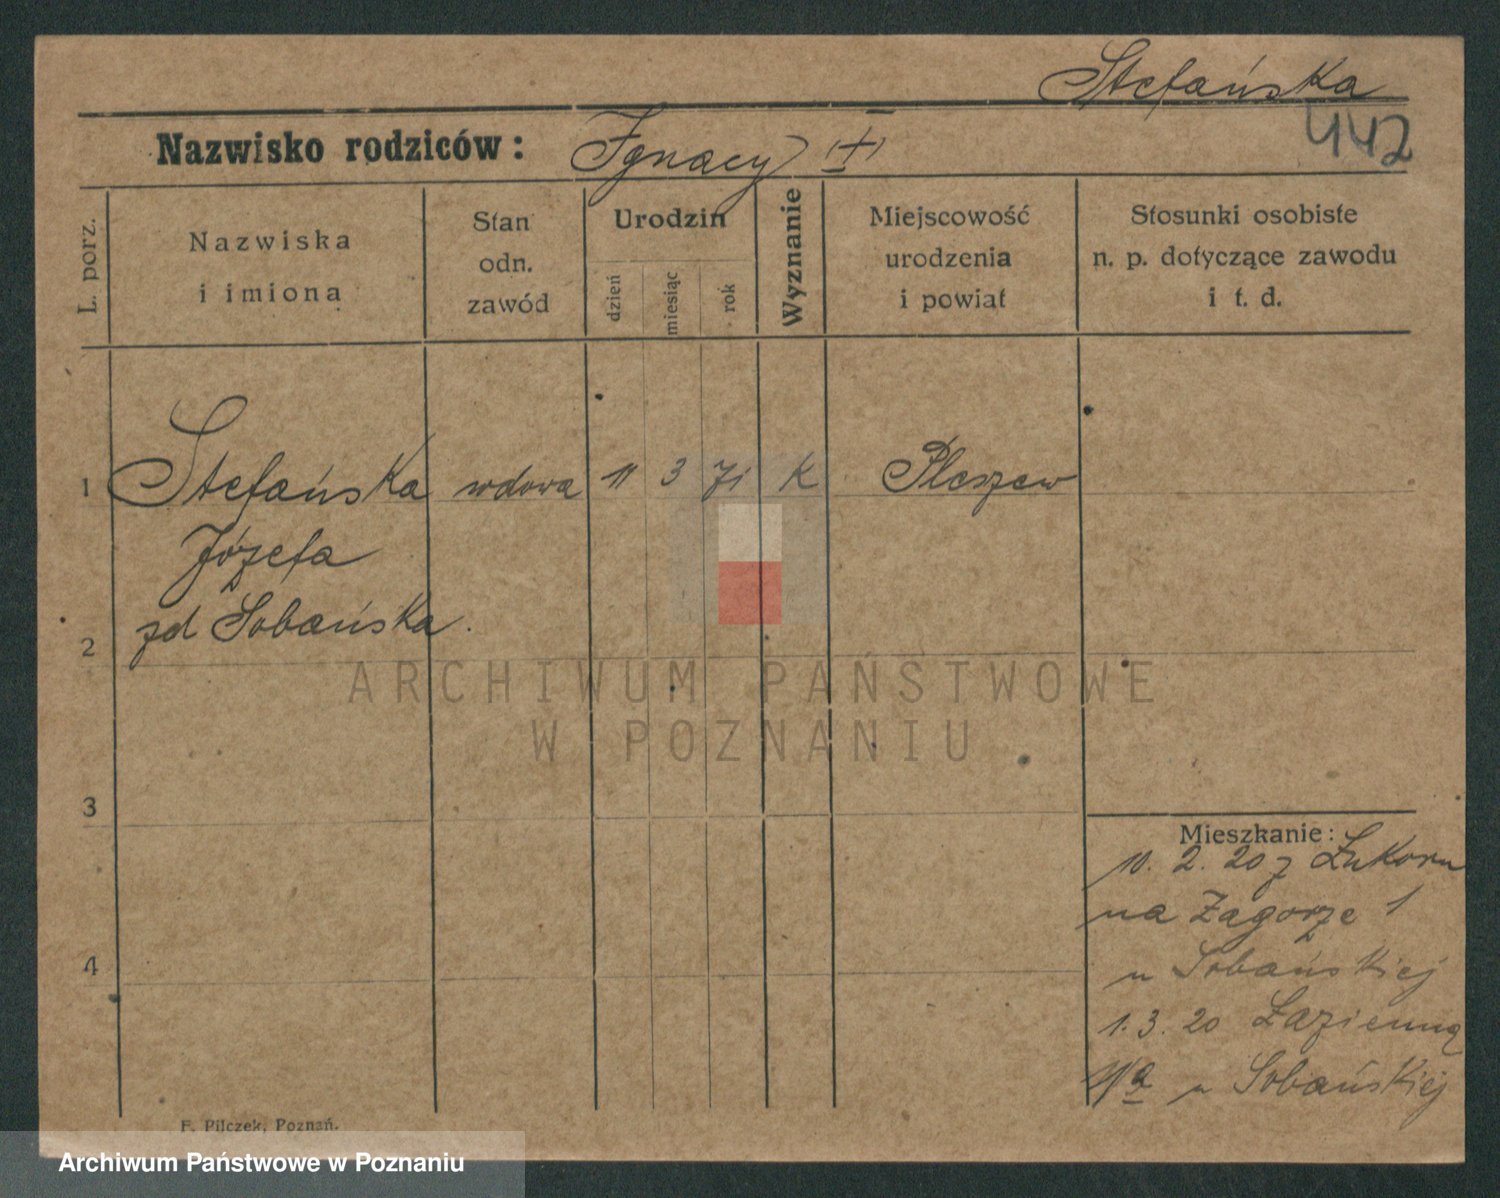 Stefańska
Nazwisko rodziców: Ignacy (+)
442
L. porz.
Nazwiska
i imiona
Stan
odn.
zawód
Urodzin
dzień
miesiąc
rok
Wyznanie
Miejscowość
urodzenia
i powiat
Stosunki osobiste
n. p. dotyczące zawodu
i t. d.
1 Stefańska wdowa 11 3 71 k Pleszew
Józefa
zd Sobańska.
2
3
4
Mieszkanie:
10. 2. 20 z
na Zagórze 1
u Sobańskiej
1. 3. 20 Łazienną
u Sobańskiej
F. Pilczek, Poznań.
ARCHIWUM PAŃSTWOWE
W POZNANIU
Archiwum Państwowe w Poznaniu